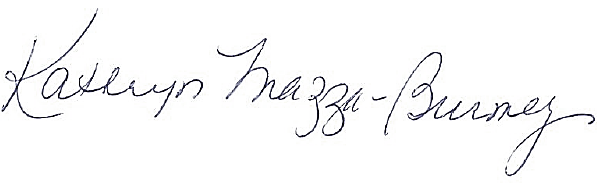 Kathryn Mazza-Burney